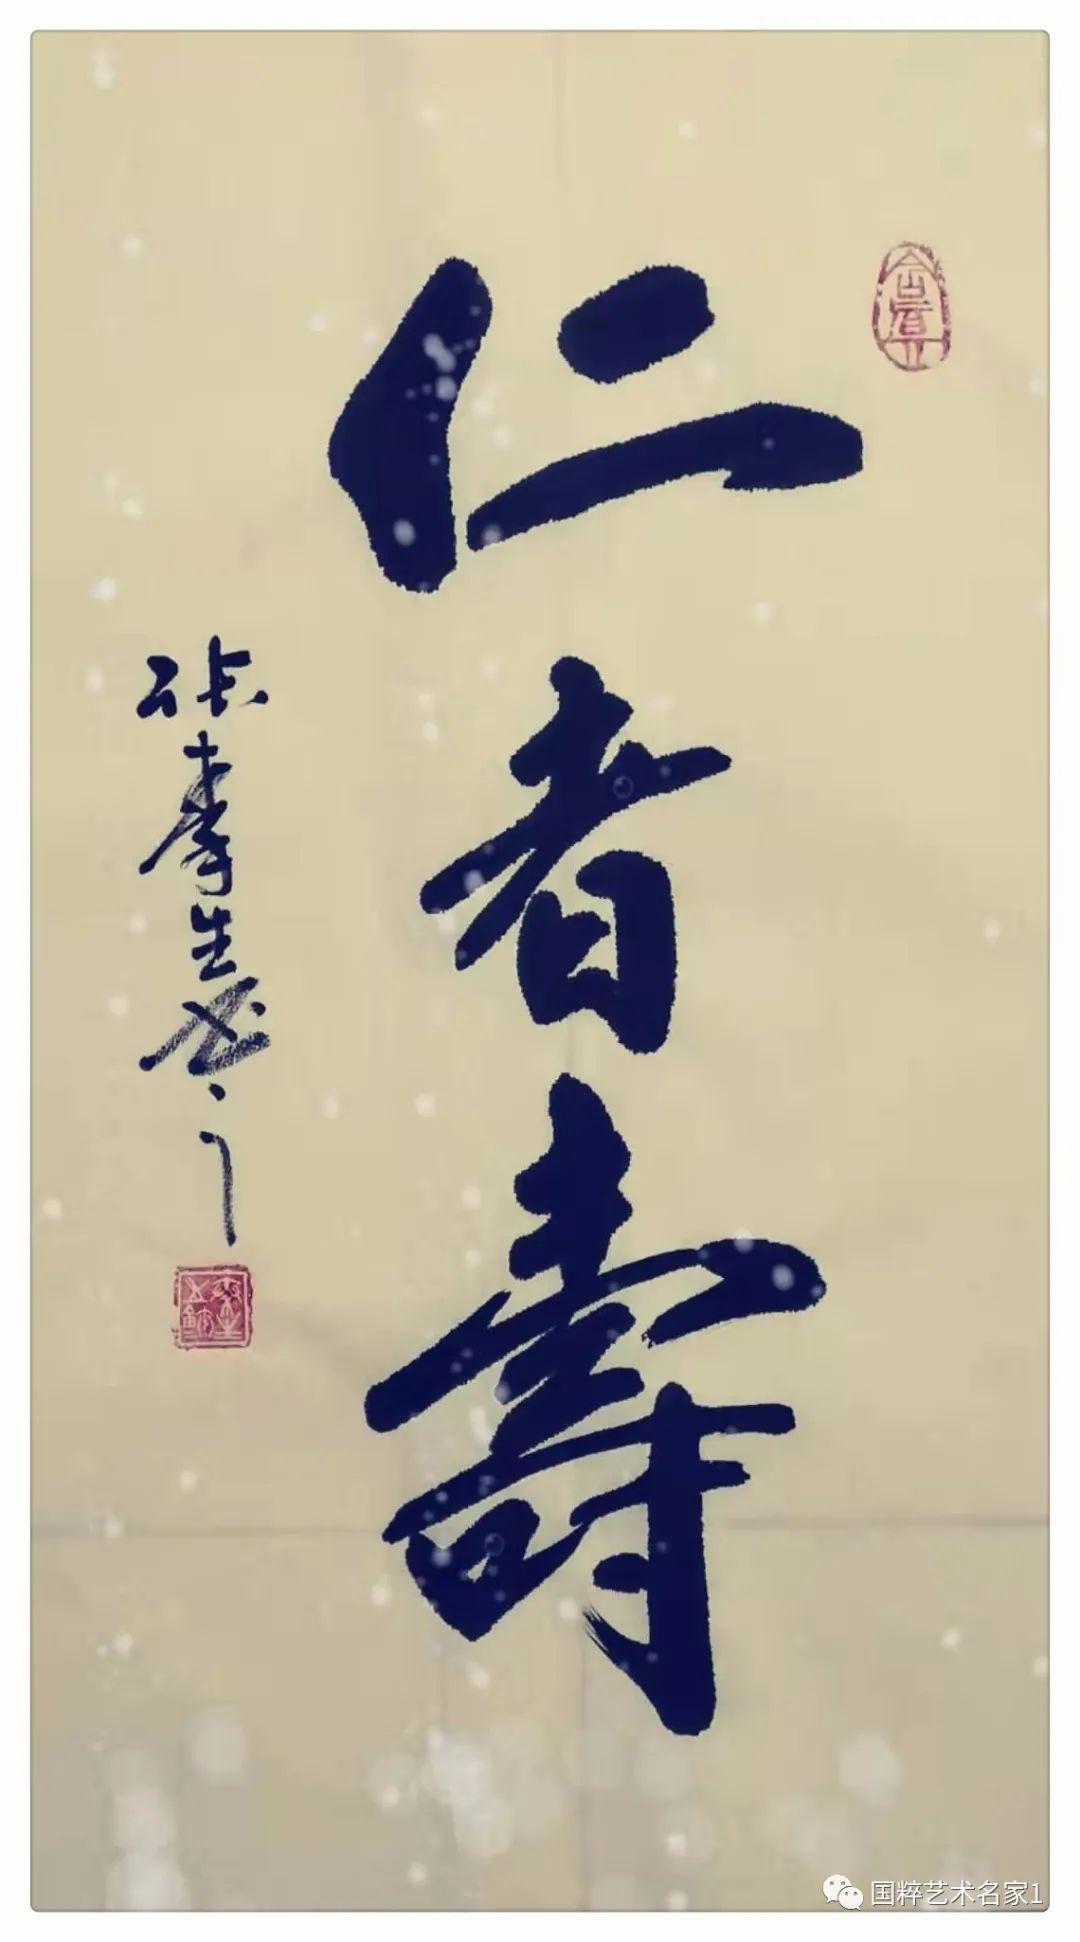 仁者壽
张孝生书
国粹艺术名家1